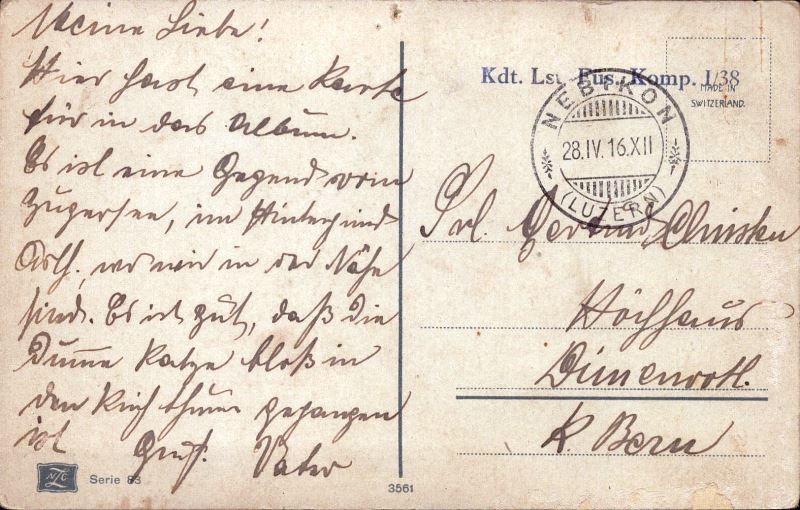 Meine Liebe!
Hier hast eine Karte
für in das Album.
Es ist eine Gegend vom
Zugersee, im Hintergrund
Arth., wo wir in der Nähe
sind. Es ist gut, daß die
Katze bloß in
den gegangen
ist Gruß. Vater
NZC
Serie 83
3561
Kdt. Lst. Fus. Komp. I/38
MADE IN
SWITZERLAND.
NEBIKON
28.IV.16.XII
(LUZERN)
Frl. Gertrud
Höchhaus
K. Bern